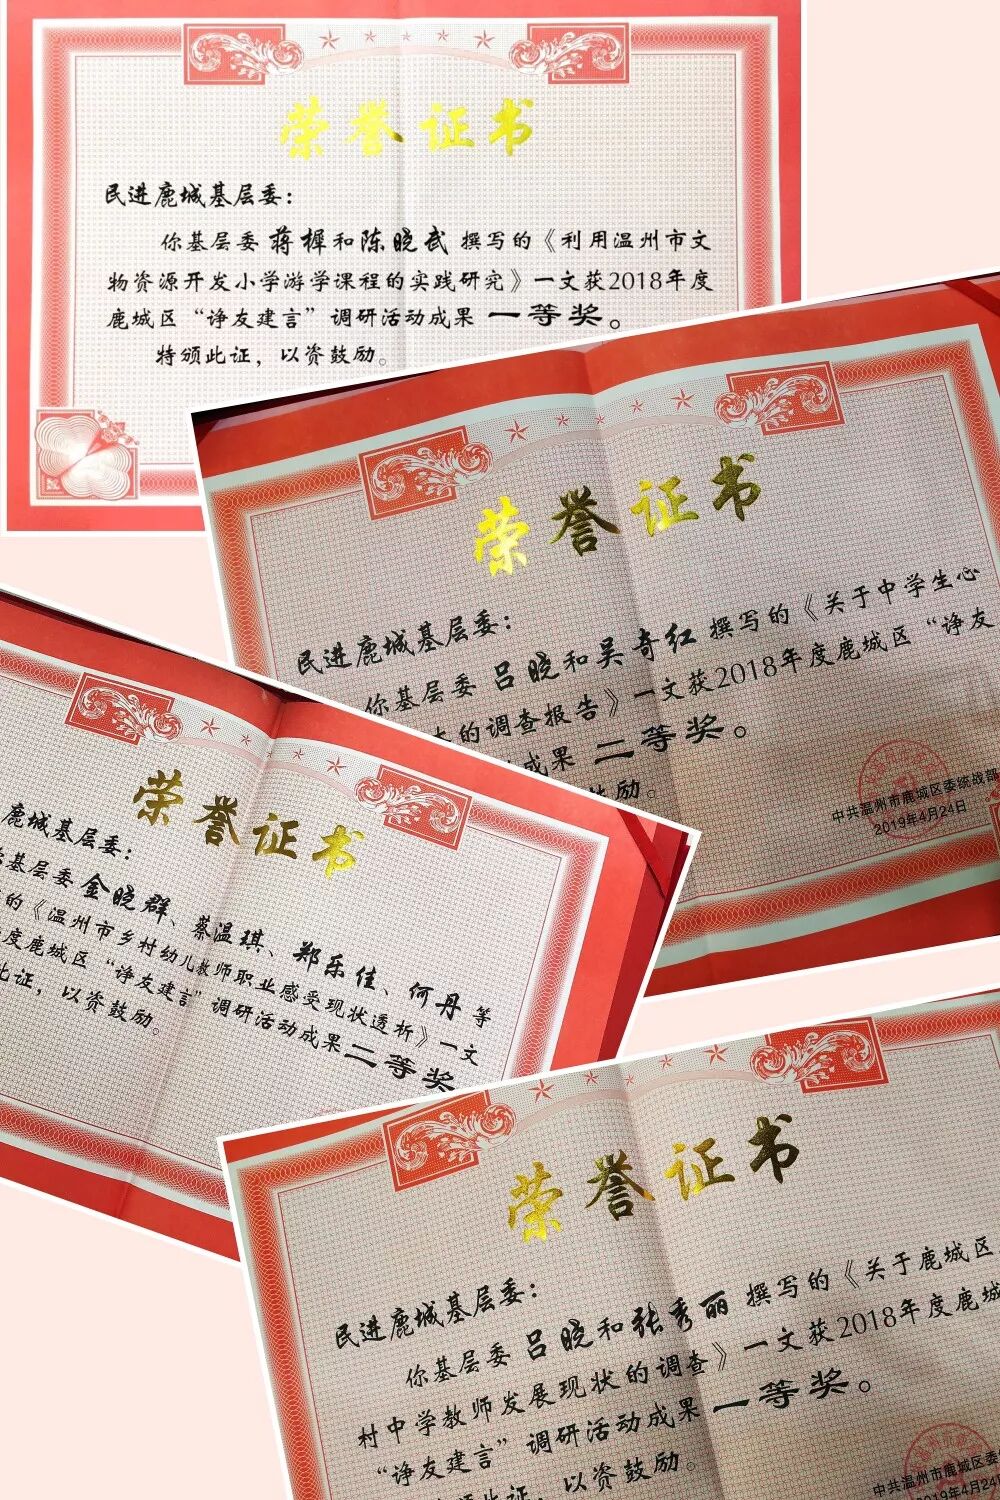 荣誉证书
民进鹿城基层委：
你基层委 蒋樨和陈晓武 撰写的《利用温州市文
物资源开发小学游学课程的实践研究》一文获2018年度
鹿城区“诤友建言”调研活动成果 一等奖。
特颁此证，以资鼓励。
荣誉证书
民进鹿城基层委：
你基层委 吕晓和吴奇红 撰写的《关于中学生心
的调查报告》一文获2018年度鹿城区“诤友
成果 二等奖。
鼓励。
中共温州市鹿城区委统战部
2019年4月24日
荣誉证书
鹿城基层委：
基层委 金晓群、蔡温琪、郑乐佳、何丹 等
的《温州市乡村幼儿教师职业感受现状透析》一文
度鹿城区“诤友建言”调研活动成果二等奖
此证，以资鼓励。
荣誉证书
民进鹿城基层委：
你基层委 吕晓和张秀丽 撰写的《关于鹿城区
村中学教师发展现状的调查》一文获2018年度鹿城
“诤友建言”调研活动成果 一等奖。
此证，以资鼓励。
中共温州市鹿城区委
2019年4月24